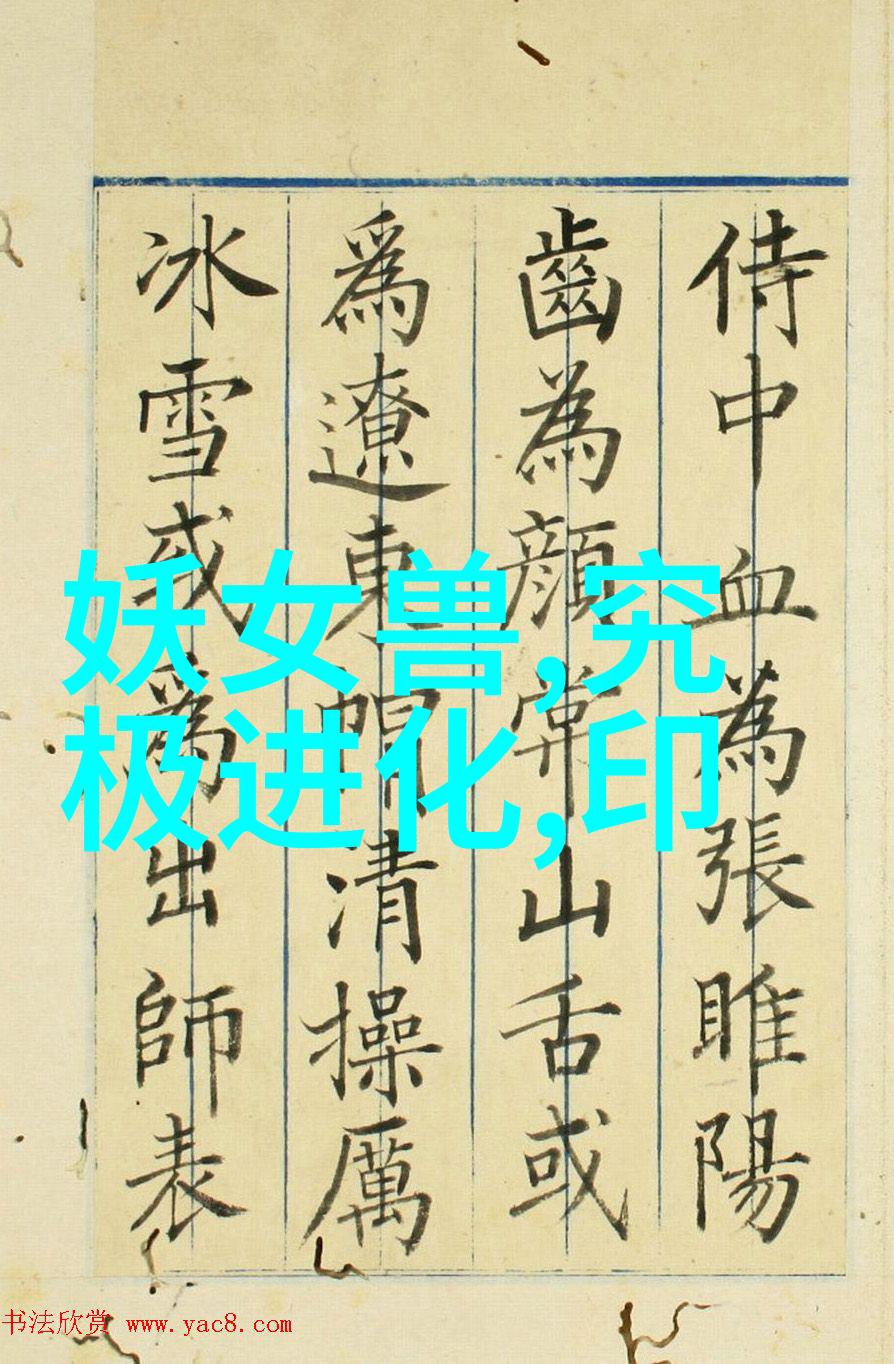 侍中血為張睢陽
齒為顏常山舌或
爲遼東帽清操厲
冰雪或爲出師表
妖女兽,究
极进化,印
书法欣赏 www.yac8.com